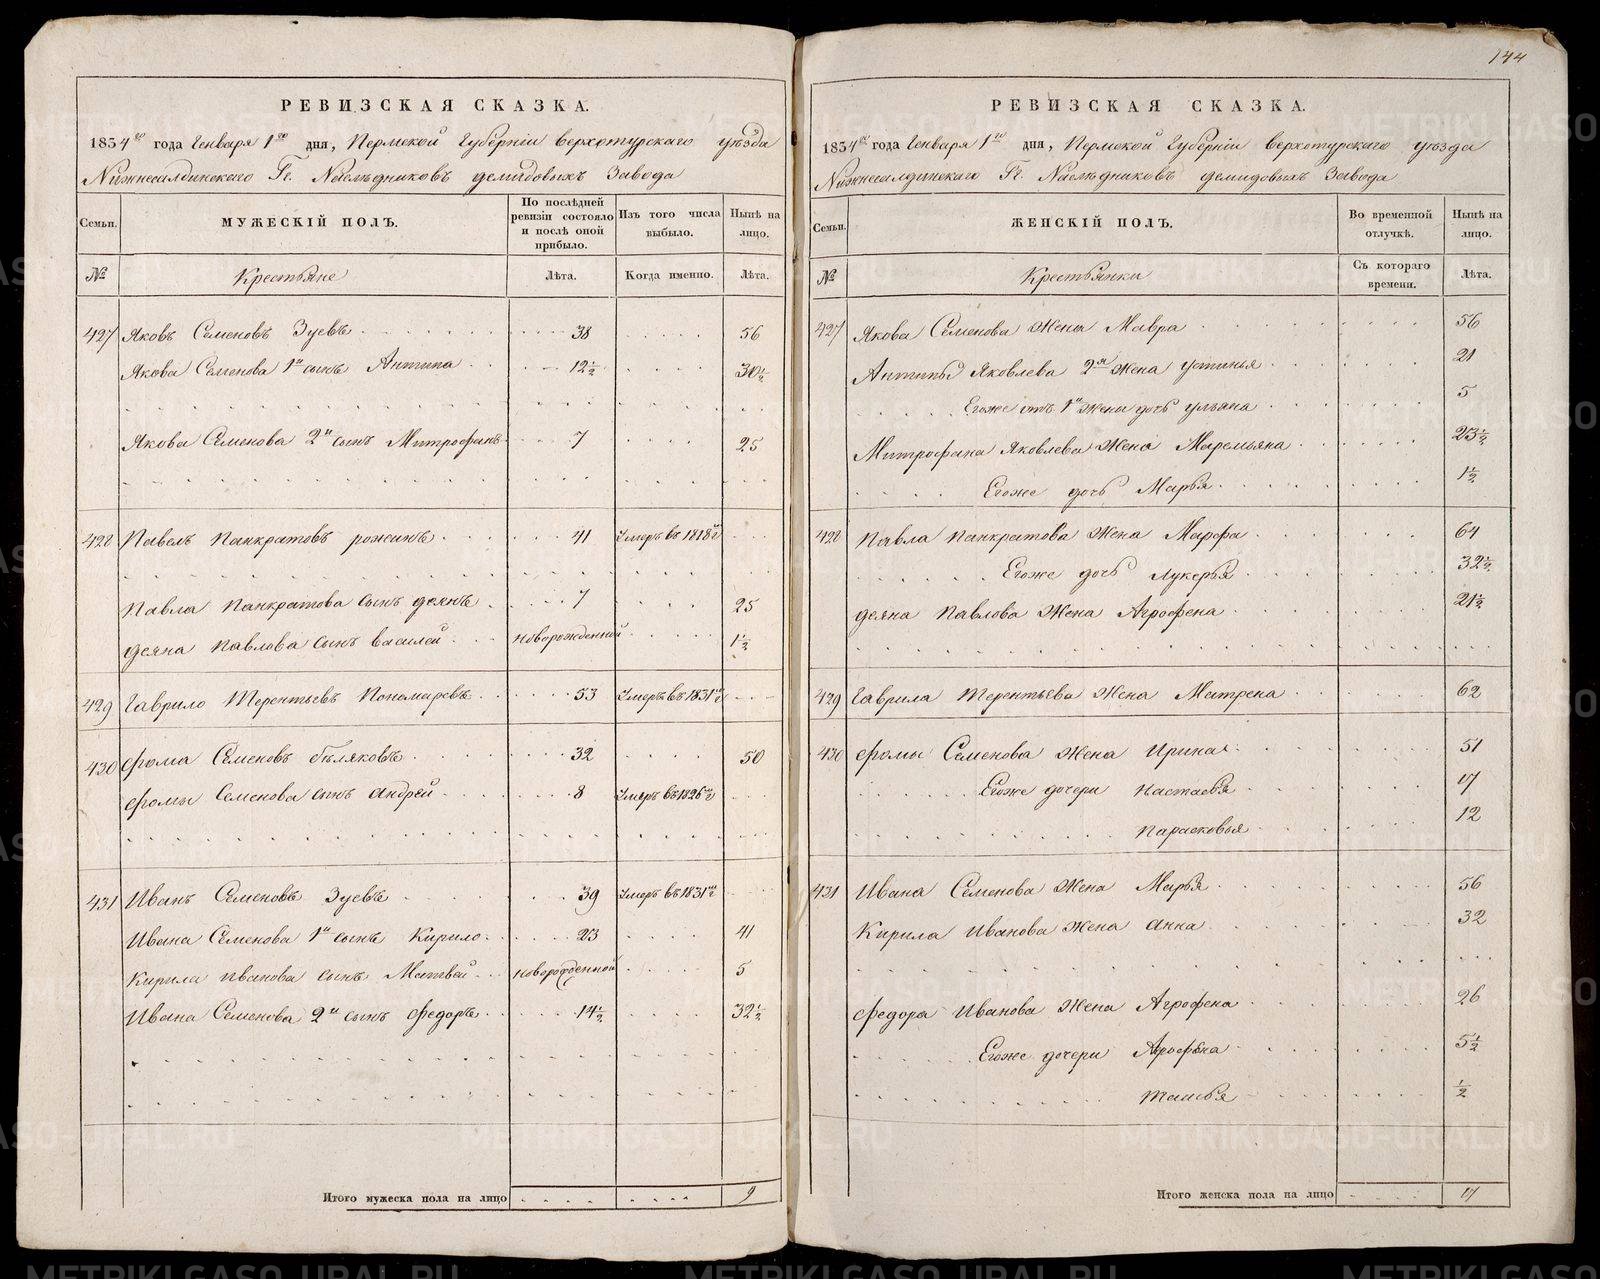 144
РЕВИЗСКАЯ СКАЗКА.
1834го года Генваря 1го дня, Пермской Губернiи верхотурскаго уѣзда
Нижнесалдинскаго Гг. Наслѣдниковъ демидовыхъ Завода
Семьи. МУЖЕСКIЙ ПОЛЪ. По послѣдней ревизiи состояло и послѣ оной прибыло. Изъ того числа выбыло. Нынѣ на лицо.
№ Крестьяне Лѣта. Когда именно. Лѣта.
427 Яковъ Семеновъ Зуевъ 38 56
Якова Семенова 1й сынъ Антипа 12½ 30½
Якова Семенова 2й сынъ Митрофанъ 7 25
428 Павелъ Панкратовъ рожинъ 41 Умеръ въ 1818м
Павла Панкратова сынъ деянъ 7 25
деяна Павлова сынъ василей новорожденной 1½
429 Гаврило Терентьевъ Пономаревъ 53 Умеръ въ 1831м
430 фома Семеновъ бѣляковъ 32 50
фомы Семенова сынъ андрей 8 Умеръ въ 1826м
431 Иванъ Семеновъ Зуевъ 39 Умеръ въ 1831м
Ивана Семенова 1й сынъ Кирило 23 41
Кирила иванова сынъ Матвей новорожденной 5
Ивана Семенова 2й сынъ федоръ 14½ 32½
Итого мужеска пола на лицо 9
РЕВИЗСКАЯ СКАЗКА.
1834го года Генваря 1го дня, Пермской Губернiи верхотурскаго уѣзда
Нижнесалдинскаго Гг. Наслѣдниковъ демидовыхъ Завода
Семьи. ЖЕНСКIЙ ПОЛЪ. Во временной отлучкѣ. Нынѣ на лицо.
№ Крестьянки Съ котораго времени. Лѣта.
427 Якова Семенова жена Мавра 56
Антипы Яковлева 2я жена устинья 21
Егоже отъ 1й жены дочь ульяна 5
Митрофана Яковлева жена Маремьяна 23½
Егоже дочь Марья 1½
428 Павла Панкратова жена Марфа 64
Егоже дочь лукерья 32½
деяна Павлова жена Агрофена 21½
429 Гаврила Терентьева жена Матрена 62
430 фомы Семенова жена Ирина 51
Егоже дочери Настасья 17
Парасковья 12
431 Ивана Семенова жена Марья 56
Кирила Иванова жена анна 32
федора Иванова жена Агрофена 26
Егоже дочери Агрофена 5½
таисья ½
Итого женска пола на лицо 17
METRIKI.GASO-URAL.RU